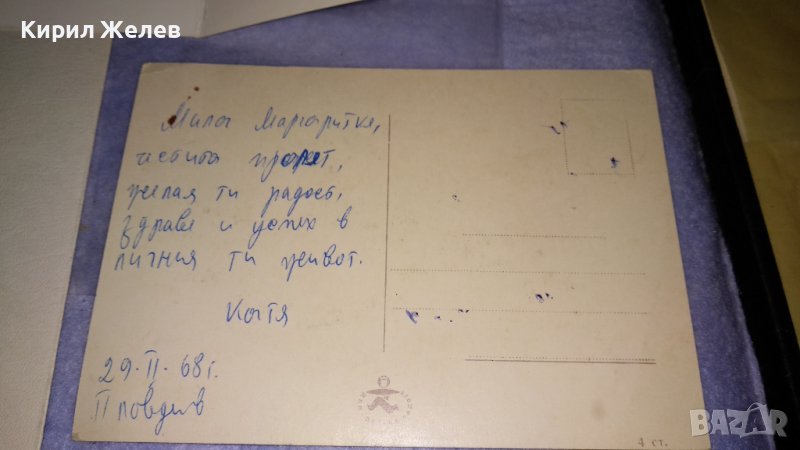 Кирил Желев
Мила Маргаритке,
честита пролет,
желая ти радост,
здраве и успех в
личния ти живот.
Катя
29·II·68г.
Пловдив
4 ст.
BAZAR
bg